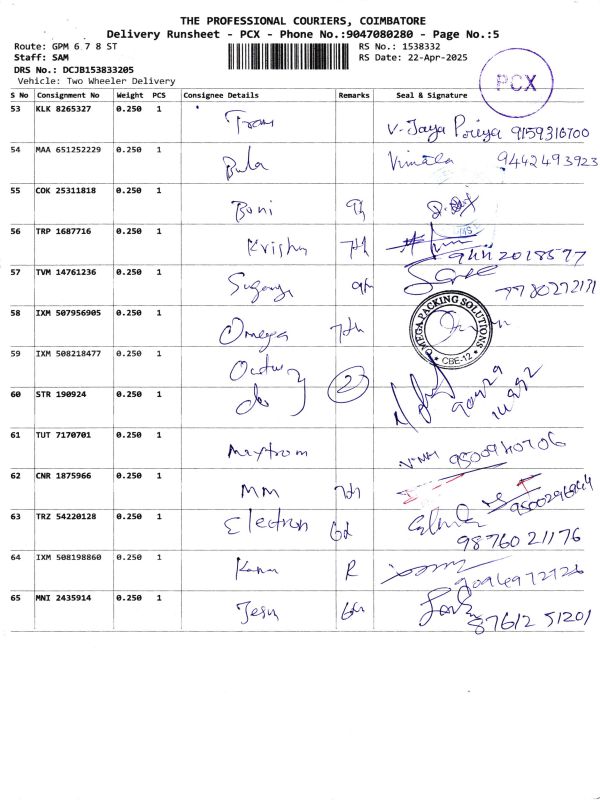 THE PROFESSIONAL COURIERS, COIMBATORE
Delivery Runsheet - PCX - Phone No.:9047080280 - Page No.:5
Route: GPM 6 7 8 ST
Staff: SAM
DRS No.: DCJB153833205
Vehicle: Two Wheeler Delivery
RS No.: 1538332
RS Date: 22-Apr-2025
PCX
S No Consignment No Weight PCS Consignee Details Remarks Seal & Signature
53 KLK 8265327 0.250 1 V. Jaya Poriya 9159316700
54 MAA 651252229 0.250 1 Bula Vimala 9442493923
55 COK 25311818 0.250 1 Boni
56 TRP 1687716 0.250 1 Krishna 7th
57 TVM 14761236 0.250 1 7780272131
58 IXM 507956905 0.250 1 Omega 7th
OMEGA PACKING SOLUTIONS
* CBE-12 *
59 IXM 508218477 0.250 1
60 STR 190924 0.250 1 do 2
61 TUT 7170701 0.250 1 Maxtrom
62 CNR 1875966 0.250 1 MM 7th
63 TRZ 54220128 0.250 1 Electron 98760 21176
64 IXM 508198860 0.250 1 R
65 MNI 2435914 0.250 1 Jesu 87612 51201